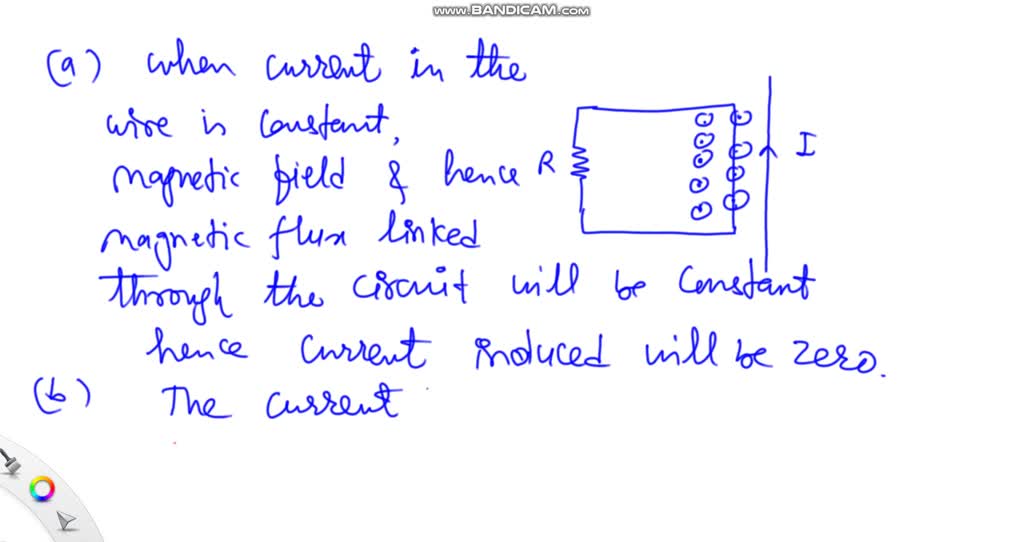 www.BANDICAM.com
(a) when current in the
wire is constant,
magnetic field & hence
magnetic flux linked
through the circuit will be constant
hence current induced will be zero.
(b) The current
R
I